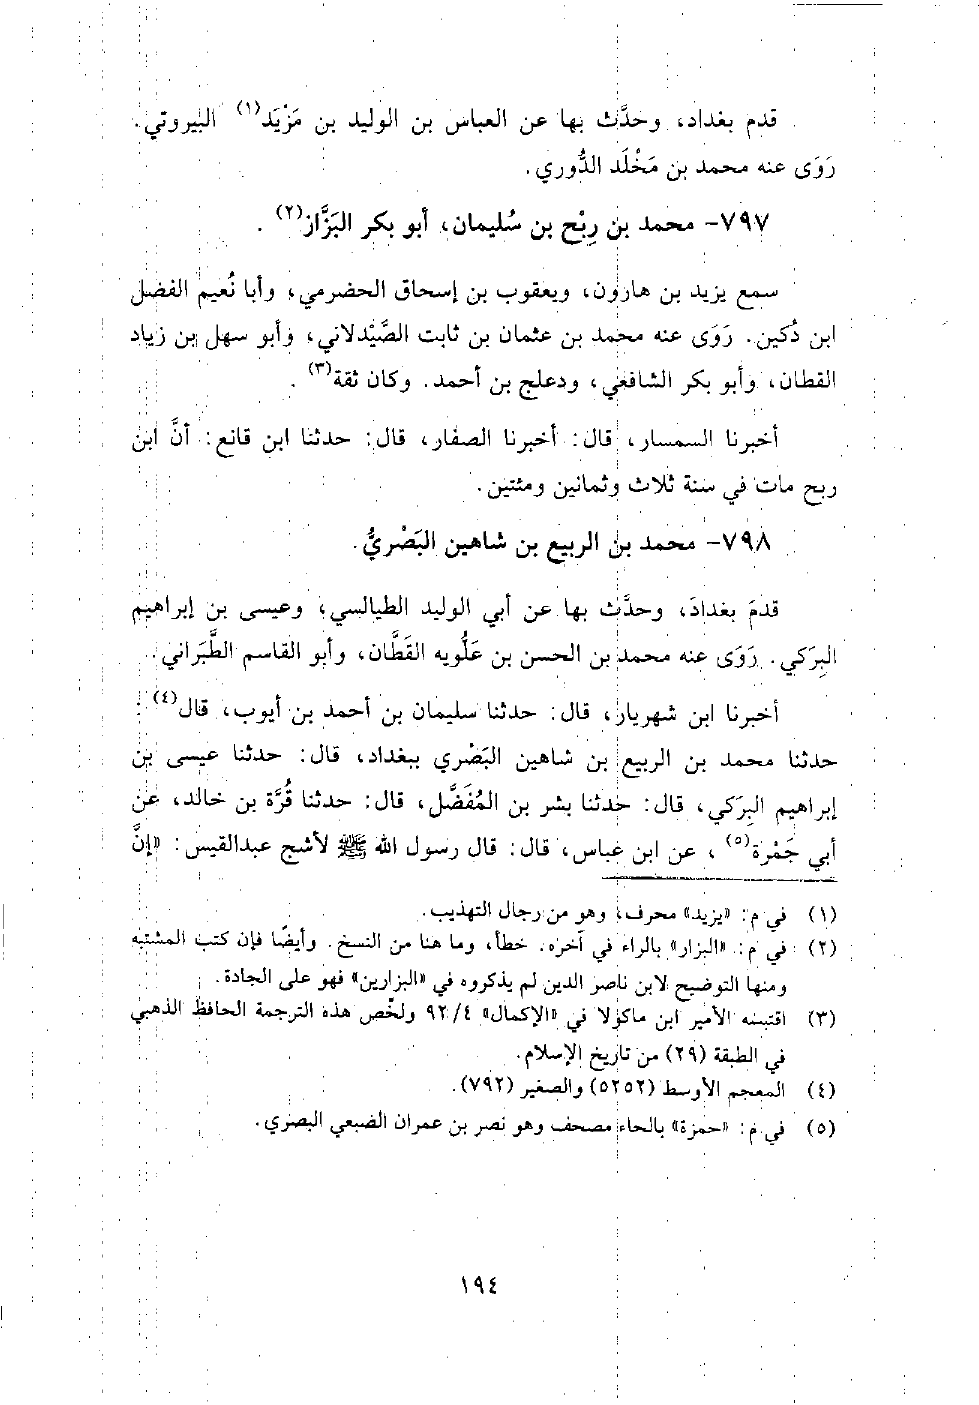 قدم بغداد، وحدَّث بها عن العباس بن الوليد بن مَزْيَد(١) البيروتي.
رَوَى عنه محمد بن مَخْلَد الدُّوري.
٧٩٧- محمد بن رِبْح بن سُليمان، أبو بكر البَزَّاز(٢).
سمع يزيد بن هارون، ويعقوب بن إسحاق الحضرمي، وأبا نُعيم الفضل
ابن دُكين. رَوَى عنه محمد بن عثمان بن ثابت الصَّيْدلاني، وأبو سهل بن زياد
القطان، وأبو بكر الشافعي، ودعلج بن أحمد. وكان ثقة(٣).
أخبرنا السمسار، قال: أخبرنا الصفار، قال: حدثنا ابن قانع: أنَّ ابن
ربح مات في سنة ثلاث وثمانين ومئتين.
٧٩٨- محمد بن الربيع بن شاهين البَصْريُّ.
قدمَ بغدادَ، وحدَّث بها عن أبي الوليد الطيالسي، وعيسى بن إبراهيم
البِرَكي. رَوَى عنه محمد بن الحسن بن عَلُّويه القَطَّان، وأبو القاسم الطَّبَراني.
أخبرنا ابن شهريار، قال: حدثنا سليمان بن أحمد بن أيوب، قال(٤):
حدثنا محمد بن الربيع بن شاهين البَصْري ببغداد، قال: حدثنا عيسى بن
إبراهيم البِرَكي، قال: حدثنا بشر بن المُفَضَّل، قال: حدثنا قُرَّة بن خالد، عن
أبي جَمْرة(٥)، عن ابن عباس، قال: قال رسول الله ﷺ لأشج عبدالقيس: «إنَّ
(١) في م: «يزيد» محرف، وهو من رجال التهذيب.
(٢) في م: «البزار» بالراء في آخره. خطأ، وما هنا من النسخ. وأيضًا فإن كتب المشتبه
ومنها التوضيح لابن ناصر الدين لم يذكروه في «البزارين» فهو على الجادة.
(٣) اقتبسه الأمير ابن ماكولا في «الإكمال» ٤/ ٩٢ ولخّص هذه الترجمة الحافظ الذهبي
في الطبقة (٢٩) من تاريخ الإسلام.
(٤) المعجم الأوسط (٥٢٥٢) والصغير (٧٩٢).
(٥) في م: «حمزة» بالحاء مصحف وهو نصر بن عمران الضبعي البصري.
١٩٤